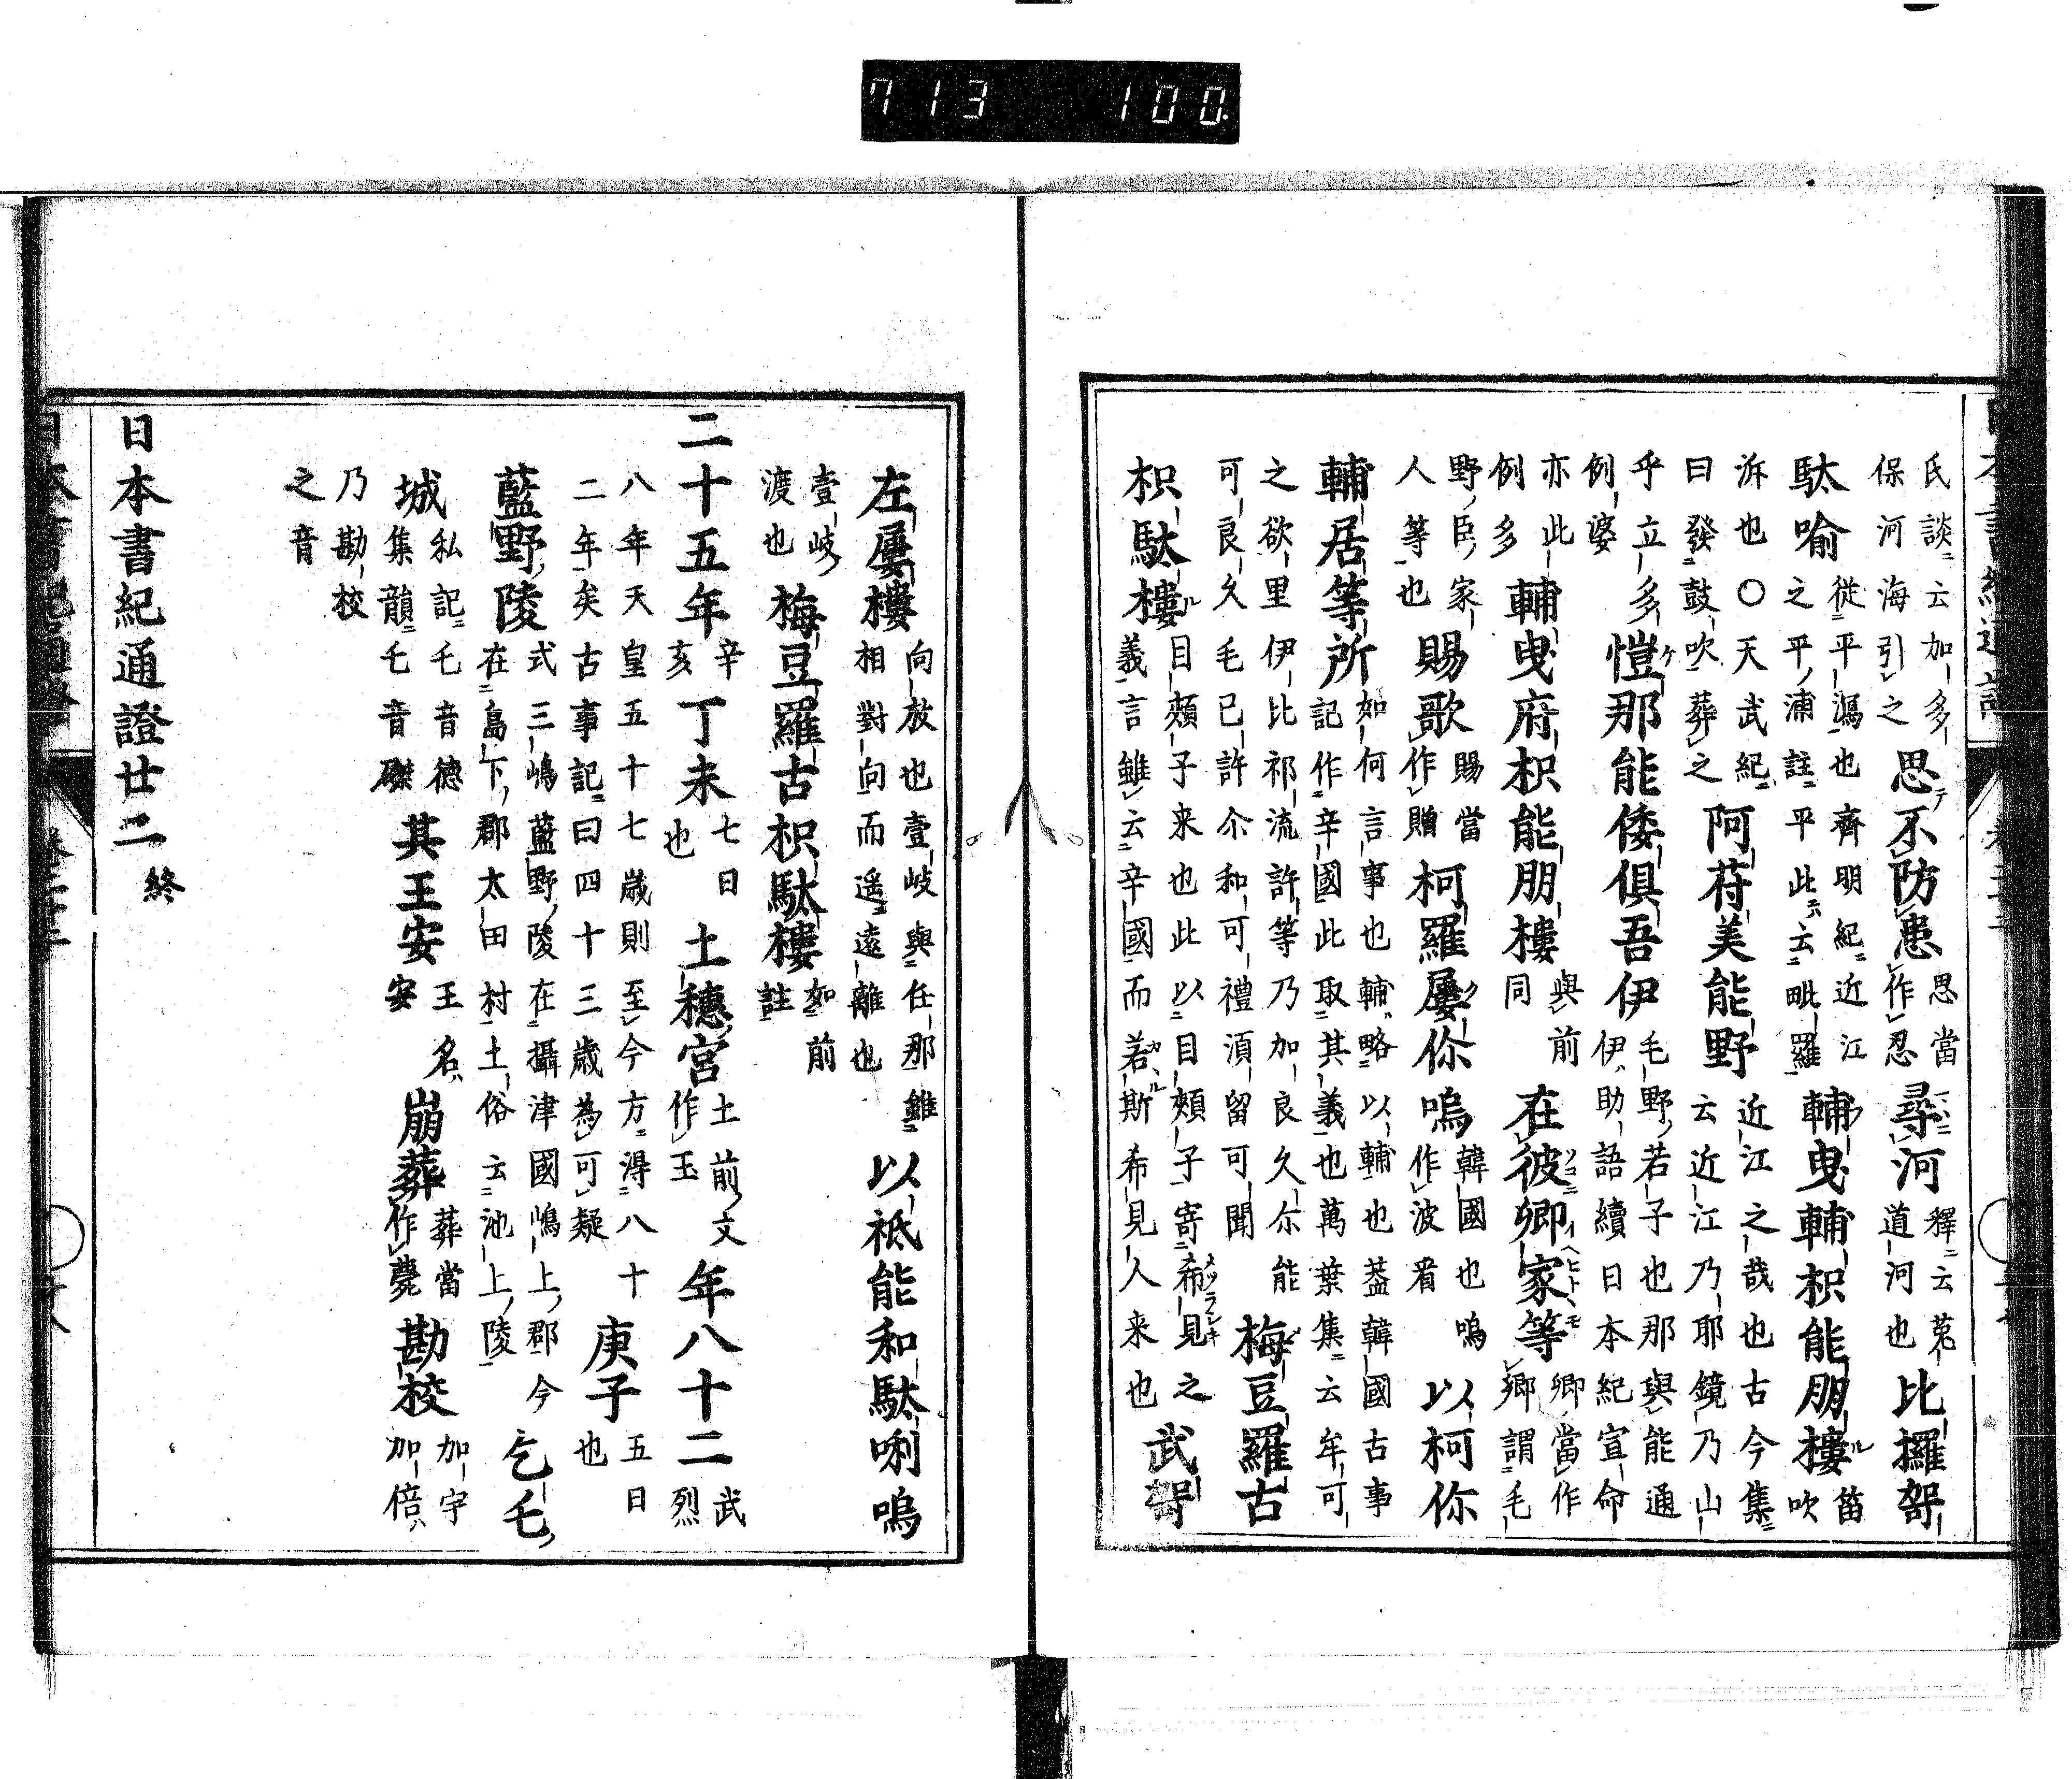 氏談云加多保河海引之思不防患思當作忍尋河釋云菟道河也比攞哿
駄喩従平濿也齊明紀近江之平浦註平此云毗羅輔曳輔枳能朋樓笛吹
泝也〇天武紀曰發鼓吹葬之阿苻美能野近江之哉也古今集云近江乃耶鏡乃山
乎立多例婆愷那能倭俱吾伊毛野若子也那與能通伊助語續日本紀宣命
亦此例多輔曳府枳能朋樓與前同在彼卿家等卿當作卿謂毛
野臣家人等也賜歌賜當作贈柯羅屨你嗚韓國也嗚作波看以柯你
輔居等所如何言事也輔略以輔也蓋韓國古事記作辛國此取其義也萬葉集云牟可
之欲里伊比祁流許等乃加良久尓能可良久毛已許尓和可禮湏留可聞梅豆羅古
枳駄樓目頰子来也此以目頰子寄希見之義言雖云辛國而若斯希見人来也武哿
左屢樓向放也壹岐與任那雖相對向而遥遠離也以祇能和駄唎嗚
壹岐渡也梅豆羅古枳駄樓如前註
二十五年辛亥丁未七日也土穗宮土前文作玉年八十二武烈
八年天皇五十七歲則至今方得八十二年矣古事記曰四十三歲為可疑庚子五日也
藍野陵式三嶋藍野陵在攝津國嶋上郡今在島下郡太田村土俗云池上陵乞乇
城私記乇音德集韻乇音磔其王安王名安崩葬葬當作薨勘校加宇加倍
乃勘校之音
日本書紀通證廿二終
713 100